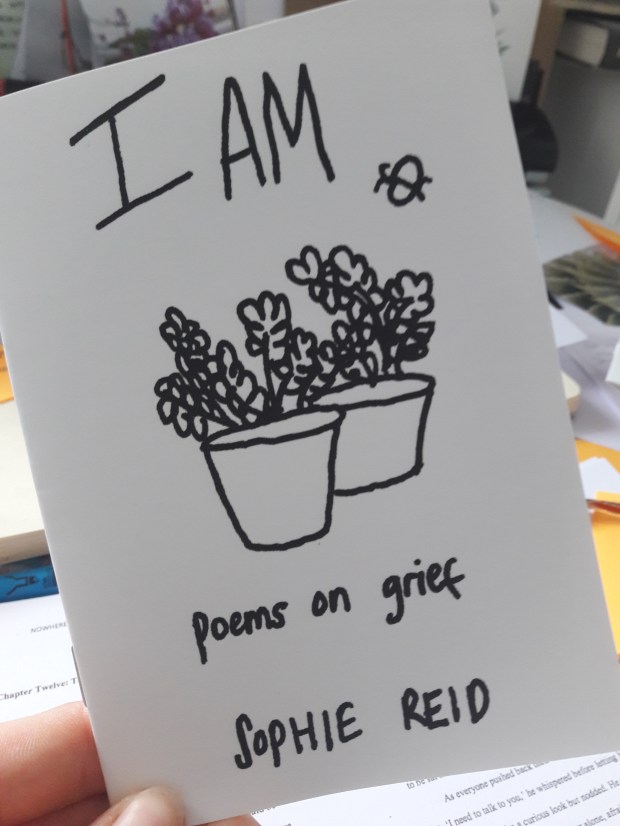 I AM
poems on grief
SOPHIE REID
NOWHERE
Chapter Twelve: T
As everyone pushed back
'I need to talk to you,' he whispered before letting
a curious look but nodded. He
alone, afrai